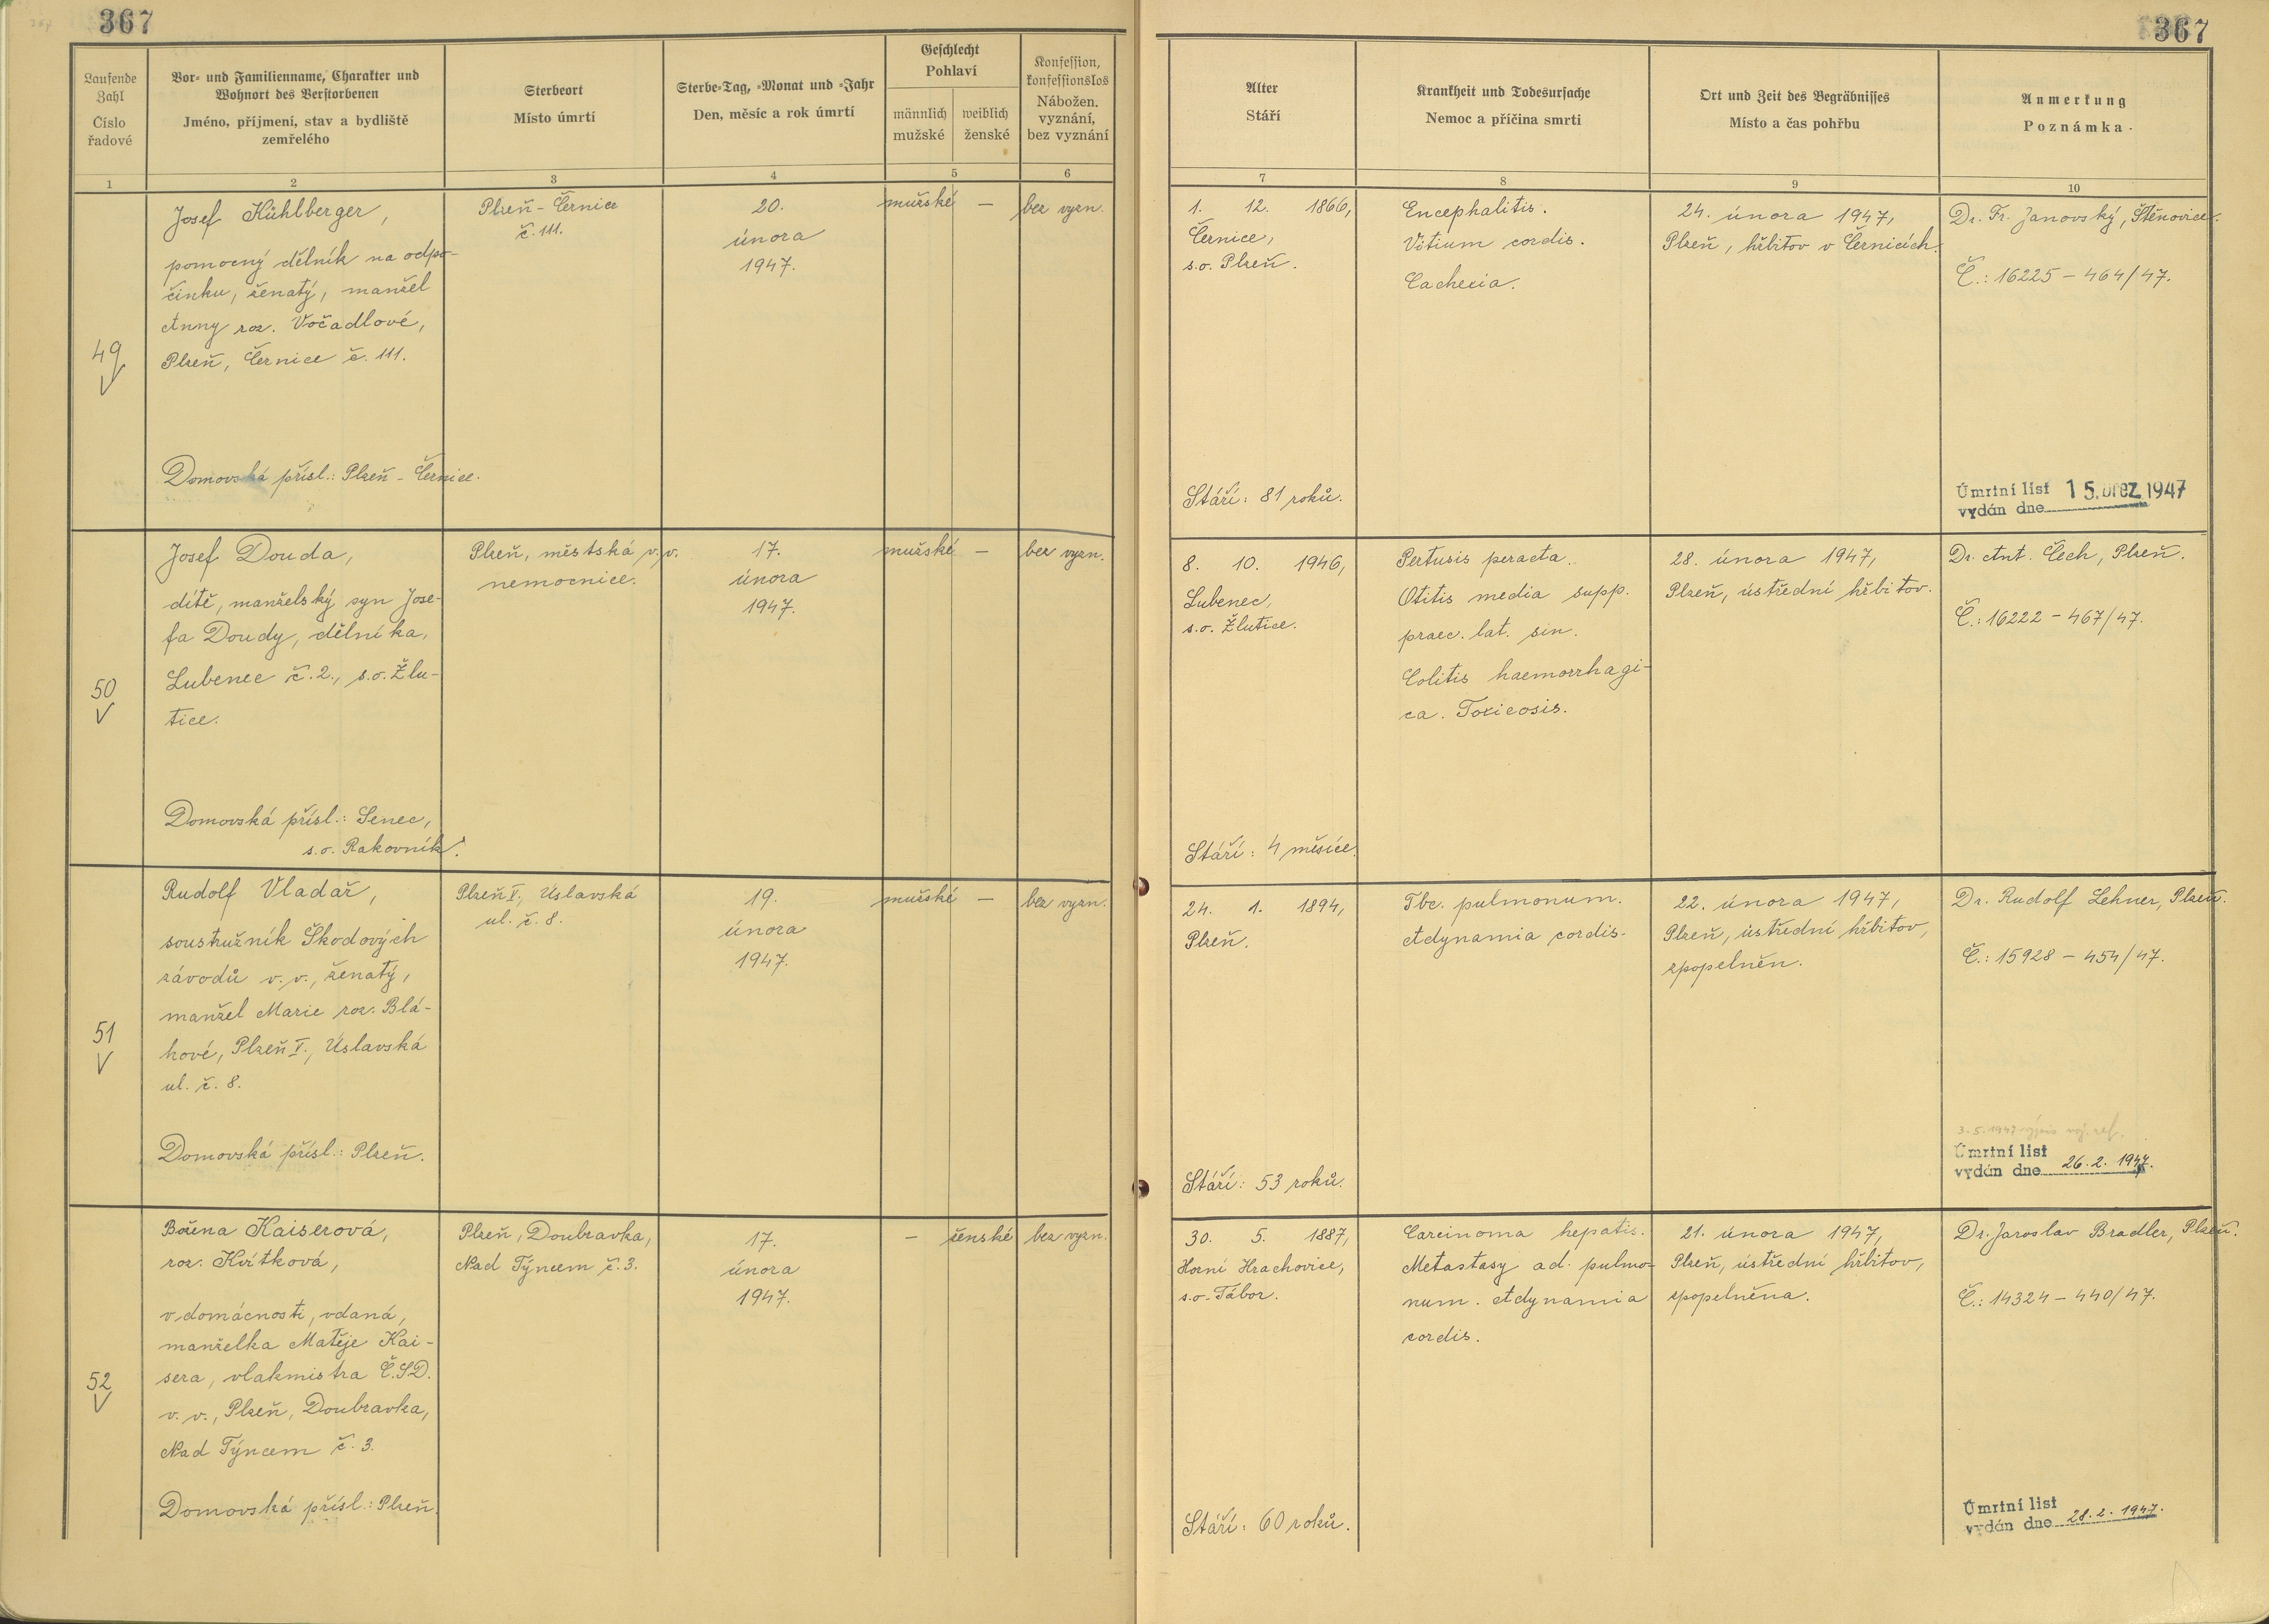 367
367
Laufende
Zahl
Číslo
řadové
Vor- und Familienname, Charakter und
Wohnort des Verstorbenen
Jméno, příjmení, stav a bydliště
zemřelého
Sterbeort
Místo úmrtí
Sterbe-Tag, -Monat und -Jahr
Den, měsíc a rok úmrtí
Geschlecht
Pohlaví
männlich
mužské
weiblich
ženské
Konfession,
konfessionslos
Nábožen.
vyznání,
bez vyznání
Alter
Stáří
Krankheit und Todesursache
Nemoc a příčina smrti
Ort und Zeit des Begräbnisses
Místo a čas pohřbu
Anmerkung
Poznámka
1
2
3
4
5
6
7
8
9
10
49
Josef Kühlberger,
pomocný dělník na odpo-
činku, ženatý, manžel
Anny roz. Vočadlové,
Plzeň, Černice č. 111.
Domovská přísl.: Plzeň - Černice.
Plzeň - Černice
č. 111.
20.
února
1947.
mužské
—
bez vyzn.
1. 12. 1866,
Černice,
s.o. Plzeň.
Stáří: 81 roků.
Encephalitis.
Vitium cordis.
Cachexia.
24. února 1947,
Plzeň, hřbitov v Černicích.
Dr. Fr. Janovský, Štěnovice.
Č.: 16225 - 464/47.
Úmrtní list
vydán dne 15. břez. 1947
50
Josef Douda,
dítě, manželský syn Jose-
fa Doudy, dělníka,
Lubenec č. 2., s.o. Žlu-
tice.
Domovská přísl.: Senec,
s.o. Rakovník.
Plzeň, městská v.v.
nemocnice.
17.
února
1947.
mužské
—
bez vyzn.
8. 10. 1946,
Lubenec,
s.o. Žlutice.
Stáří: 4 měsíce.
Pertusis peracta.
Otitis media supp.
praec. lat. sin.
Colitis haemorrhagi-
ca. Toxicosis.
28. února 1947,
Plzeň, ústřední hřbitov.
Dr. Ant. Čech, Plzeň.
Č.: 16222 - 467/47.
51
Rudolf Vladař,
soustružník Škodových
závodů v.v., ženatý,
manžel Marie roz. Blá-
hové, Plzeň V., Úslavská
ul. č. 8.
Domovská přísl.: Plzeň.
Plzeň V., Úslavská
ul. č. 8.
19.
února
1947.
mužské
—
bez vyzn.
24. 1. 1894,
Plzeň.
Stáří: 53 roků.
Tbc. pulmonum.
Adynamia cordis.
22. února 1947,
Plzeň, ústřední hřbitov,
zpopelněn.
Dr. Rudolf Lehner, Plzeň.
Č.: 15928 - 454/47.
3.5.1947 výpis voj. ref.
Úmrtní list
vydán dne 26.2.1947.
52
Božena Kaiserová,
roz. Kvítková,
v domácnosti, vdaná,
manželka Matěje Kai-
sera, vlakmistra Č.S.D.
v.v., Plzeň, Doubravka,
Nad Týncem č. 3.
Domovská přísl.: Plzeň.
Plzeň, Doubravka,
Nad Týncem č. 3.
17.
února
1947.
—
ženské
bez vyzn.
30. 5. 1887,
Horní Hrachovice,
s.o. Tábor.
Stáří: 60 roků.
Carcinoma hepatis.
Metastasy ad. pulmo-
num. Adynamia
cordis.
21. února 1947,
Plzeň, ústřední hřbitov,
zpopelněna.
Dr. Jaroslav Bradler, Plzeň.
Č.: 14324 - 440/47.
Úmrtní list
vydán dne 28.2.1947.